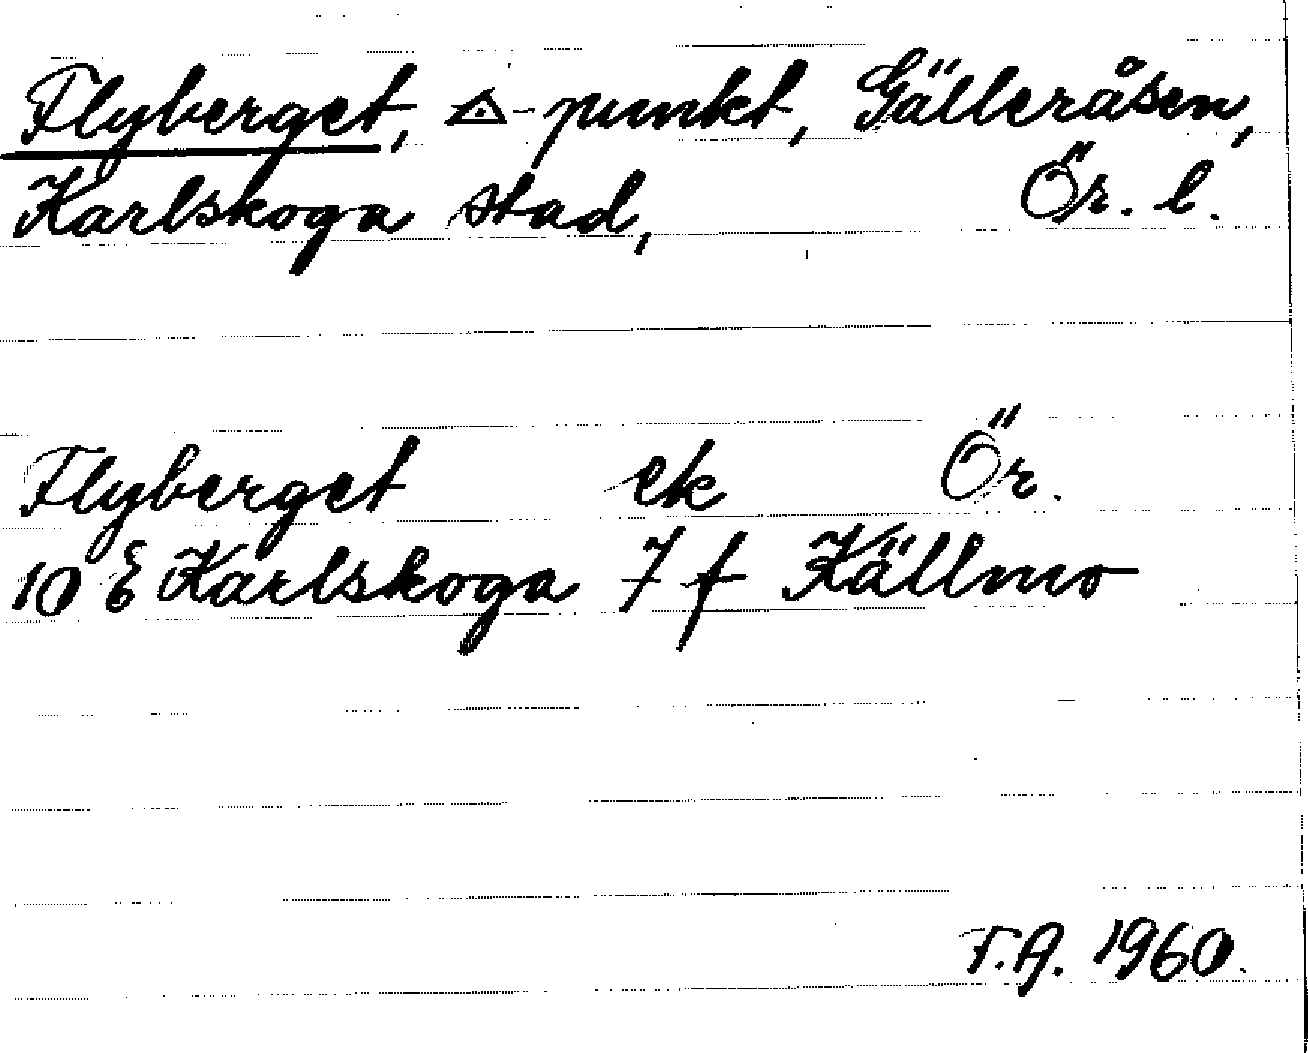 Flyberget, △-punkt, Gälleråsen,
Karlskoga stad, Ör. l.
Flyberget ek Ör.
10 E Karlskoga 7 f Källmo
T.A. 1960.